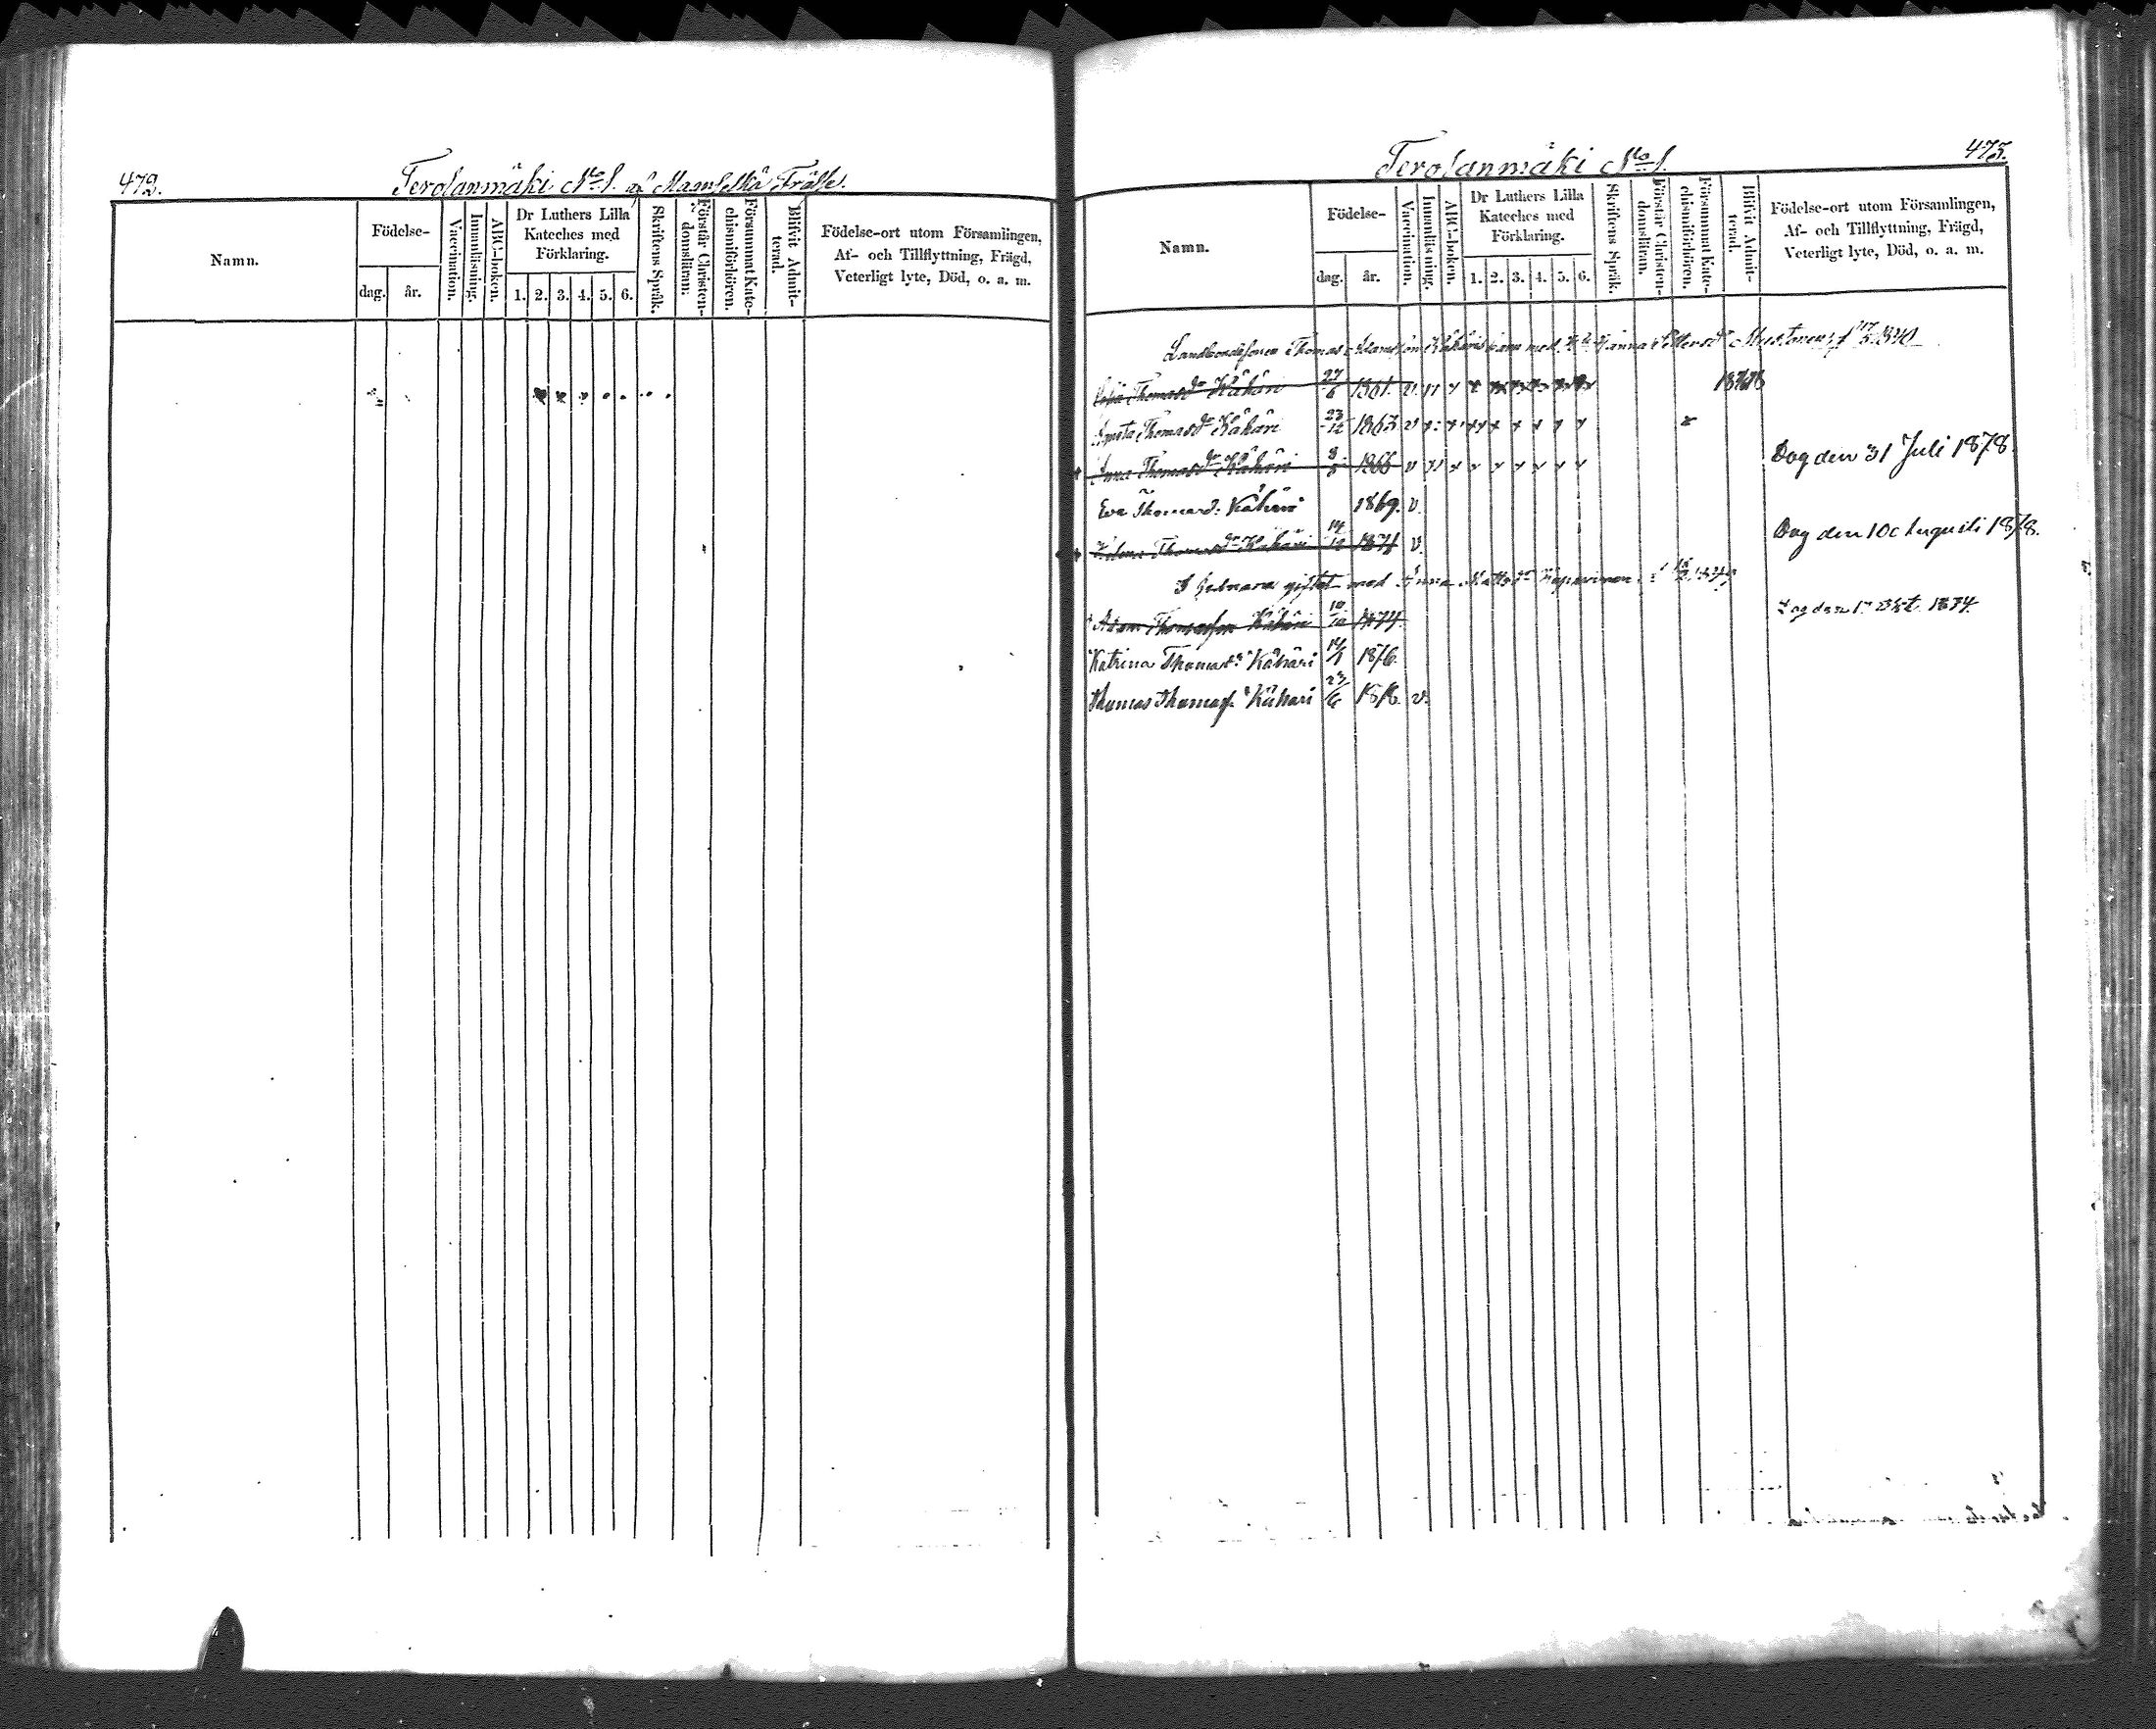 472.
Terolanmäki No 1. af Frälse.
Namn.
Födelse-
dag.
år.
Vaccination.
Innanläsning.
ABC-boken.
Dr Luthers Lilla
Kateches med
Förklaring.
1. 2. 3. 4. 5. 6.
Skriftens Språk.
Förstår Christen-
domsläran.
Försummat Kate-
chismiförhören.
Blifvit Admit-
terad.
Födelse-ort utom Församlingen,
Af- och Tillflyttning, Frägd,
Veterligt lyte, Död, o. a. m.
Terolanmäki No 1.
473.
Namn.
Födelse-
dag.
år.
Vaccination.
Innanläsning.
ABC-boken.
Dr Luthers Lilla
Kateches med
Förklaring.
1. 2. 3. 4. 5. 6.
Skriftens Språk.
Förstår Christen-
domsläran.
Försummat Kate-
chismiförhören.
Blifvit Admit-
terad.
Födelse-ort utom Församlingen,
Af- och Tillflyttning, Frägd,
Veterligt lyte, Död, o. a. m.
Landbondesonen Thomas Adamsson Kähäris barn med Anna Pettersdr 1840
Thomasdr Kähäri 27/6 1861. v.
Thomasdr Kähäri 23/12 1863 v x
Anna Thomasdr Kähäri 3/5 1866 v Dog den 31 Juli 1878.
Eva Thomasd. Kähäri 1869. v.
Helena Thomasdr Kähäri 14/12 1871 v. Dog den 10 Augusti 1878.
giftet med Anna Mattsdr
Adam Thomasson Kähäri 10/10 1874. Dog den Okt. 1874.
Katrina Thomasdr Kähäri 14/1 1876.
Thomas Thomass. Kähäri 23/6 1876. v.